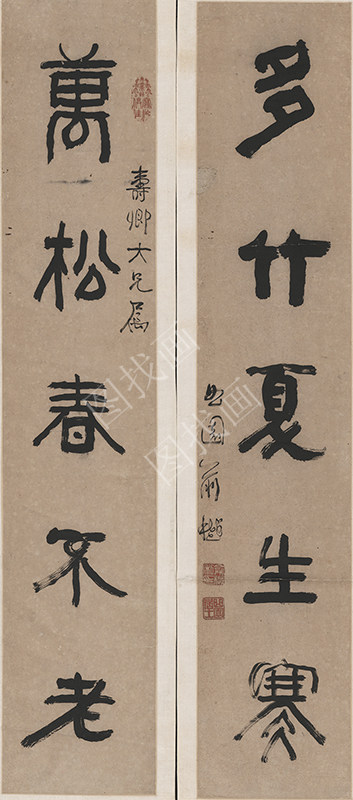 多竹夏生寒
曲园俞樾
壽卿大兄屬
萬松春不老
图找画
图找画